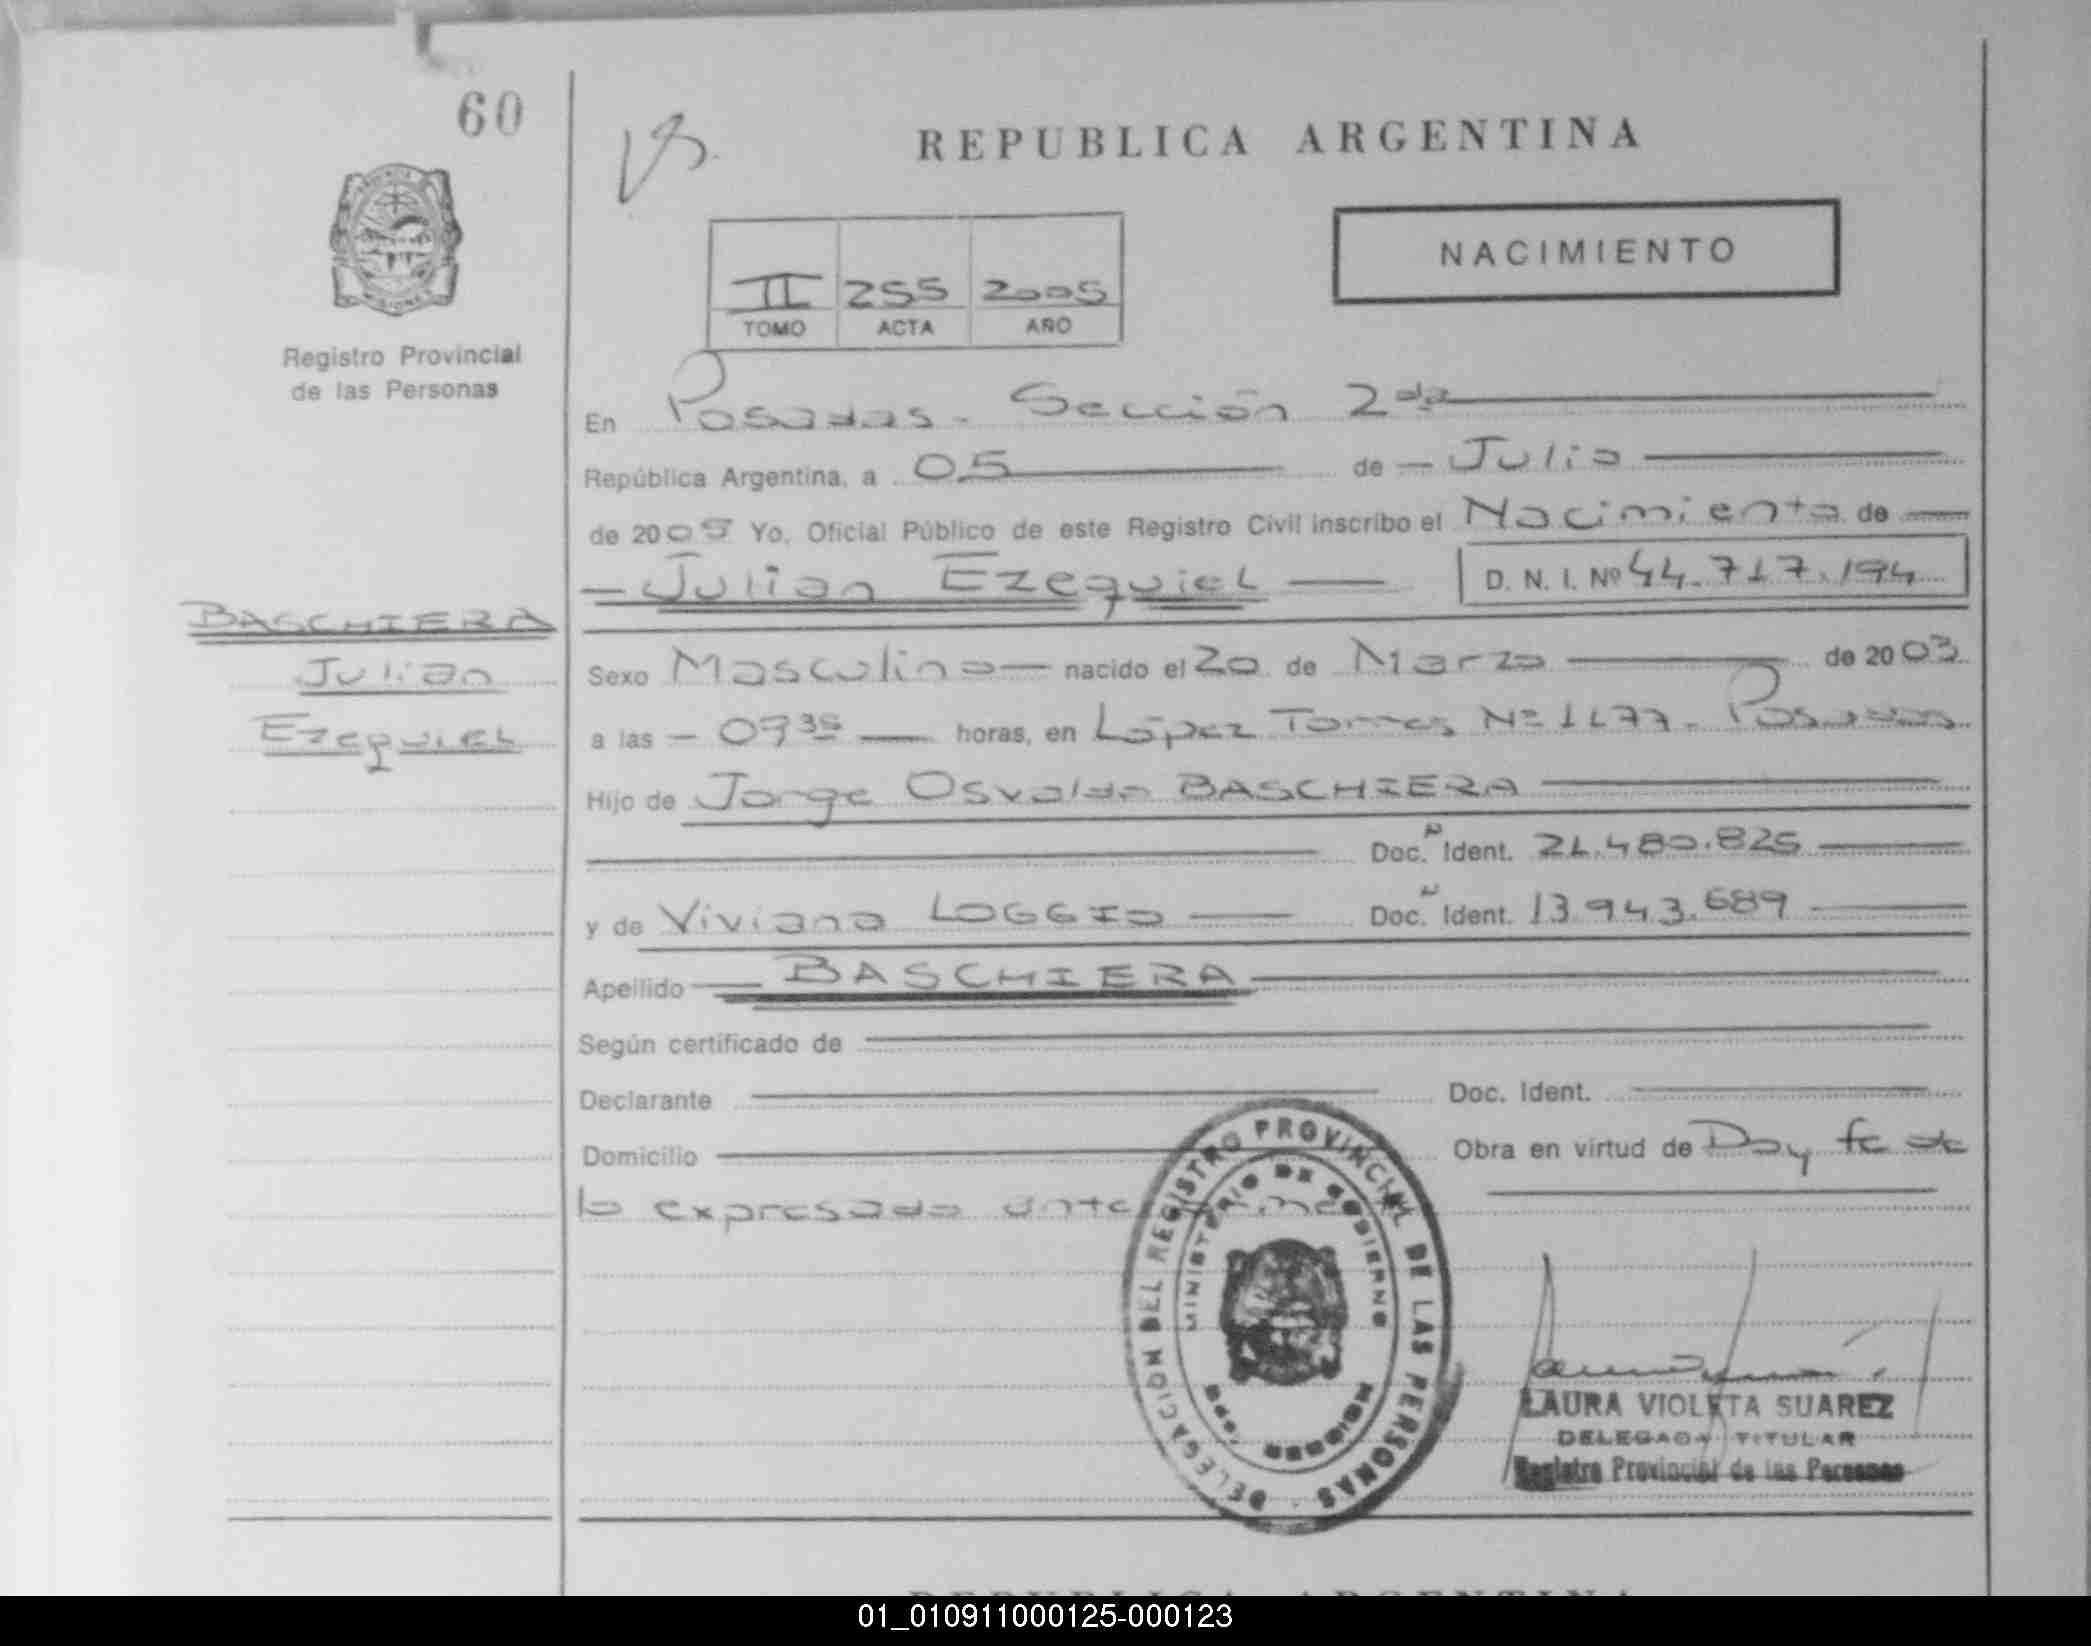 60
REPUBLICA ARGENTINA
NACIMIENTO
II 255 2005
TOMO ACTA AÑO
Registro Provincial
de las Personas
En Posadas - Sección 2da
República Argentina, a 05 de Julio
de 2005 Yo, Oficial Público de este Registro Civil inscribo el Nacimiento de
Julian Ezequiel D. N. I. Nº 44.717.194
BASCHIERA
Julian
Ezequiel
Sexo Masculino nacido el 20 de Marzo de 2003
a las 07 35 horas, en López Torres Nº 1177 - Posadas
Hijo de Jorge Osvaldo BASCHIERA
Doc. N Ident. 21.480.825
y de Viviana LOGGIO Doc. N Ident. 13.943.689
Apellido BASCHIERA
Según certificado de
Declarante Doc. Ident.
Domicilio Obra en virtud de Doy fe de
lo expresado ante mi
DELEGACION DEL REGISTRO PROVINCIAL DE LAS PERSONAS
MINISTERIO DE GOBIERNO
MISIONES
LAURA VIOLETA SUAREZ
DELEGADA TITULAR
Registro Provincial de las Personas
REPUBLICA ARGENTINA
01_010911000125-000123